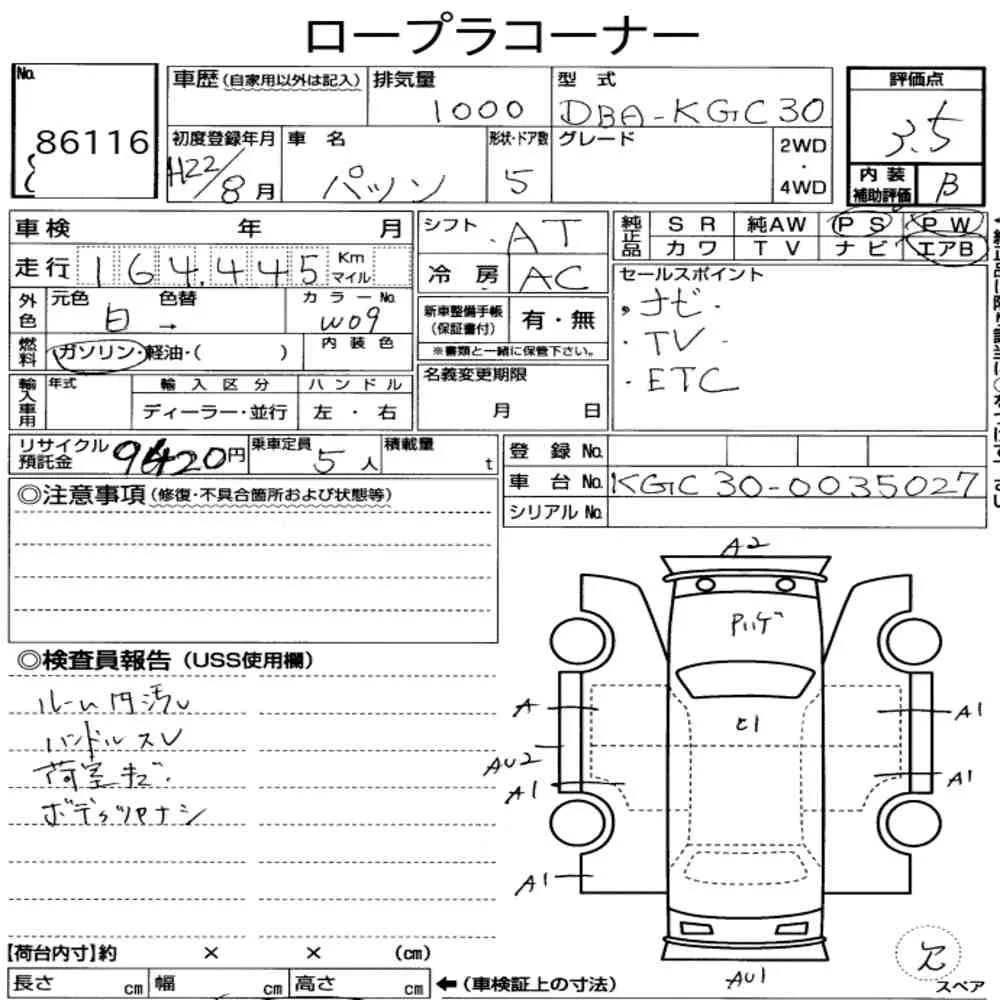 ロープラコーナー
No. 86116
車歴 (自家用以外は記入)
排気量 1000
型式 DBA-KGC30
評価点 3.5
初度登録年月 H22/8月
車名 パッソ
形状・ドア数 5
グレード
2WD・4WD
内装補助評価 B
車検 年 月
走行 164,445 Km マイル
シフト AT
冷房 AC
純正品 SR 純AW PS PW
カワ TV ナビ エアB
外色 元色 白 色替 → カラーNo. W09
燃料 ガソリン・軽油・( ) 内装色
新車整備手帳(保証書付) 有・無
※書類と一緒に保管下さい。
セールスポイント
・ナビ・
・TV・
・ETC
輸入車用 年式 輸入区分 ハンドル
ディーラー・並行 左・右
名義変更期限
月 日
リサイクル預託金 9420円
乗車定員 5人
積載量 t
登録No.
車台No. KGC30-0035027
シリアルNo.
◎注意事項 (修復・不具合箇所および状態等)
◎検査員報告 (USS使用欄)
ルーム内汚レ
ハンドルスレ
荷室キズ・
ボデーツヤナシ
A2
Pハゲ
ヒ1
A
AU2
A1
A1
A1
A1
AU1
欠
スペア
【荷台内寸】約 × × (cm)
長さ cm 幅 cm 高さ cm
←(車検証上の寸法)